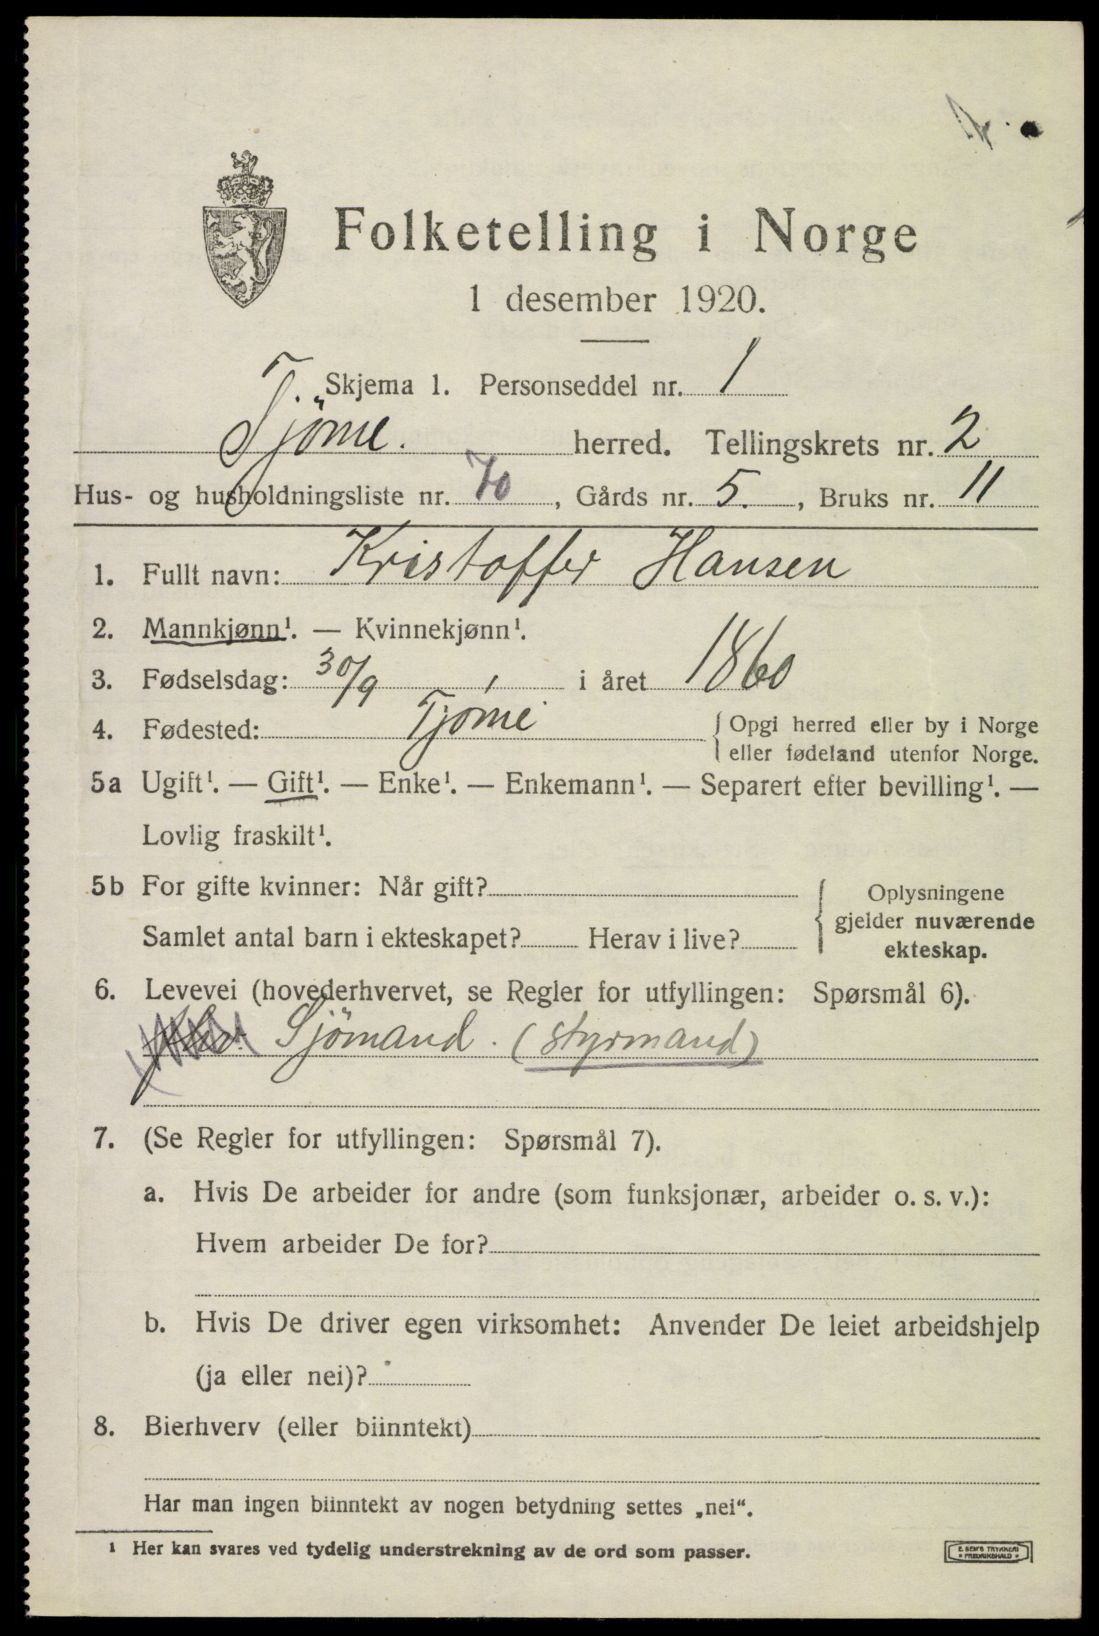 Folketelling i Norge
1 desember 1920.
Skjema 1. Personseddel nr. 1
Tjöme. herred. Tellingskrets nr. 2
Hus- og husholdningsliste nr. 70, Gårds nr. 5., Bruks nr. 11
1. Fullt navn: Kristoffer Hansen
2. Mannkjønn¹. — Kvinnekjønn¹.
3. Fødselsdag: 30/9 i året 1860
4. Fødested: Tjøme { Opgi herred eller by i Norge
eller fødeland utenfor Norge.
5a Ugift¹. — Gift¹. — Enke¹. — Enkemann¹. — Separert efter bevilling¹. —
Lovlig fraskilt¹.
5b For gifte kvinner: Når gift?
Samlet antal barn i ekteskapet? Herav i live?
Oplysningene
gjelder nuværende
ekteskap.
6. Levevei (hovederhvervet, se Regler for utfyllingen: Spørsmål 6).
Sjömand. (styrmand)
7. (Se Regler for utfyllingen: Spørsmål 7).
a. Hvis De arbeider for andre (som funksjonær, arbeider o. s. v.):
Hvem arbeider De for?
b. Hvis De driver egen virksomhet: Anvender De leiet arbeidshjelp
(ja eller nei)?
8. Bierhverv (eller biinntekt)
Har man ingen biinntekt av nogen betydning settes „nei".
¹ Her kan svares ved tydelig understrekning av de ord som passer.